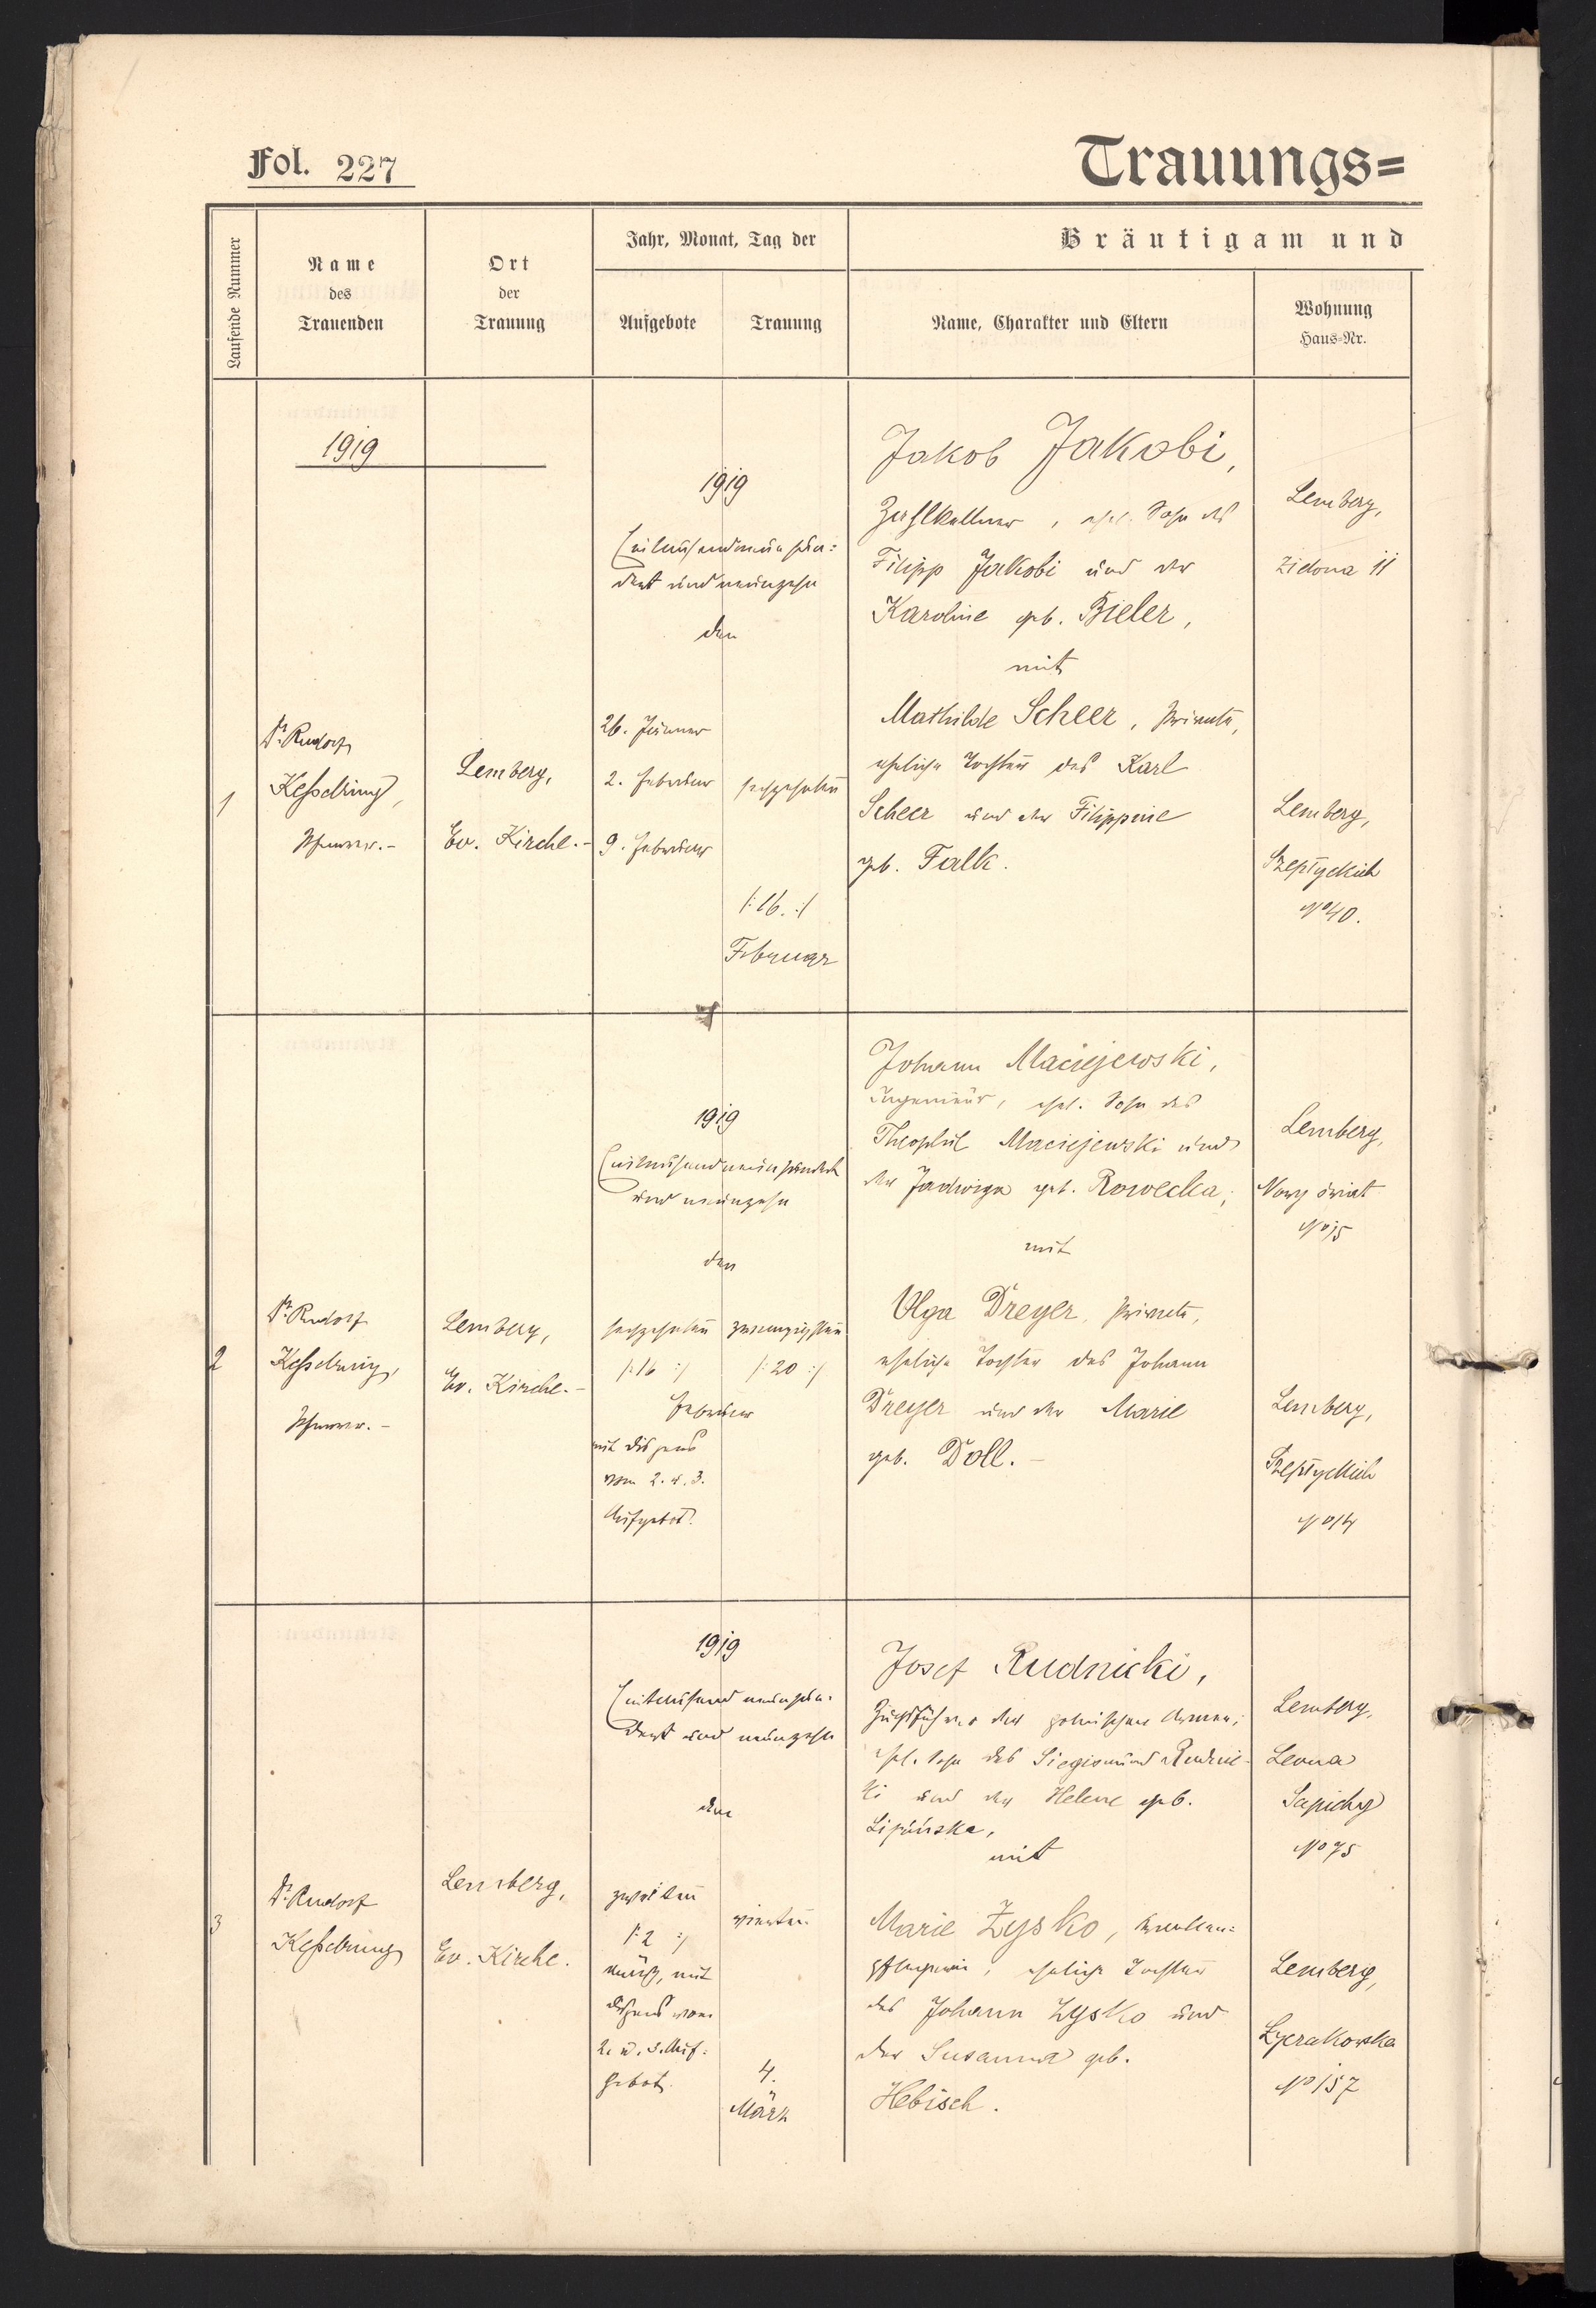 Fol. 227
Trauungs=
Laufende Nummer
Name
des
Trauenden
Ort
der
Trauung
Jahr, Monat, Tag der
Aufgebote
Trauung
Bräutigam und
Name, Charakter und Eltern
Wohnung
Haus-Nr.
1919
1
Dr. Rudolf
Kesselring,
Pfarrer.-
Lemberg,
Ev. Kirche.-
1919
Eintausendneunhun=
dert und neunzehn
den
26. Jänner
2. Februar
9. Februar
sechzehnten
/:16.:/
Februar
Jakob Jakobi,
Zahlkellner, ehel. Sohn des
Filipp Jakobi und der
Karoline geb. Bieler,
mit
Mathilde Scheer, Private,
eheliche Tochter des Karl
Scheer und der Filippine
geb. Falk.
Lemberg,
Zielona 11
Lemberg,
Szeptyckich
No 40.
2
Dr. Rudolf
Kesselring,
Pfarrer.-
Lemberg,
Ev. Kirche.-
1919
Eintausendneunhundert
und neunzehn
den
sechzehnten
/:16:/
zwanzigsten
/:20:/
Februar
mit Dispens
vom 2. u. 3.
Aufgebot.
Johann Maciejewski,
Ingenieur, ehel. Sohn des
Theophil Maciejewski und
der Jadwiga geb. Rowecka;
mit
Olga Dreyer, Private,
eheliche Tochter des Johann
Dreyer und der Marie
geb. Doll.-
Lemberg,
Nowy świat
No 15
Lemberg,
Szeptyckich
No 14
3
Dr. Rudolf
Kesselring
Lemberg,
Ev. Kirche.
1919
Eintausend neunhun=
dert und neunzehn
den
zweiten
/:2:/
März, mit
Dispens vom
2. u. 3. Auf=
gebot.
vierten
4.
März
Josef Rudnicki,
Zugsführer der polnischen Armee,
ehel. Sohn des Siegismund Rudnic-
ki und der Helene geb.
Lipińska,
mit
Marie Zysko, Kranken=
pflegerin, eheliche Tochter
des Johann Zysko und
der Susanna geb.
Hebisch.
Lemberg,
Leona
Sapiehy
No 75
Lemberg,
Łyczakowska
No 157